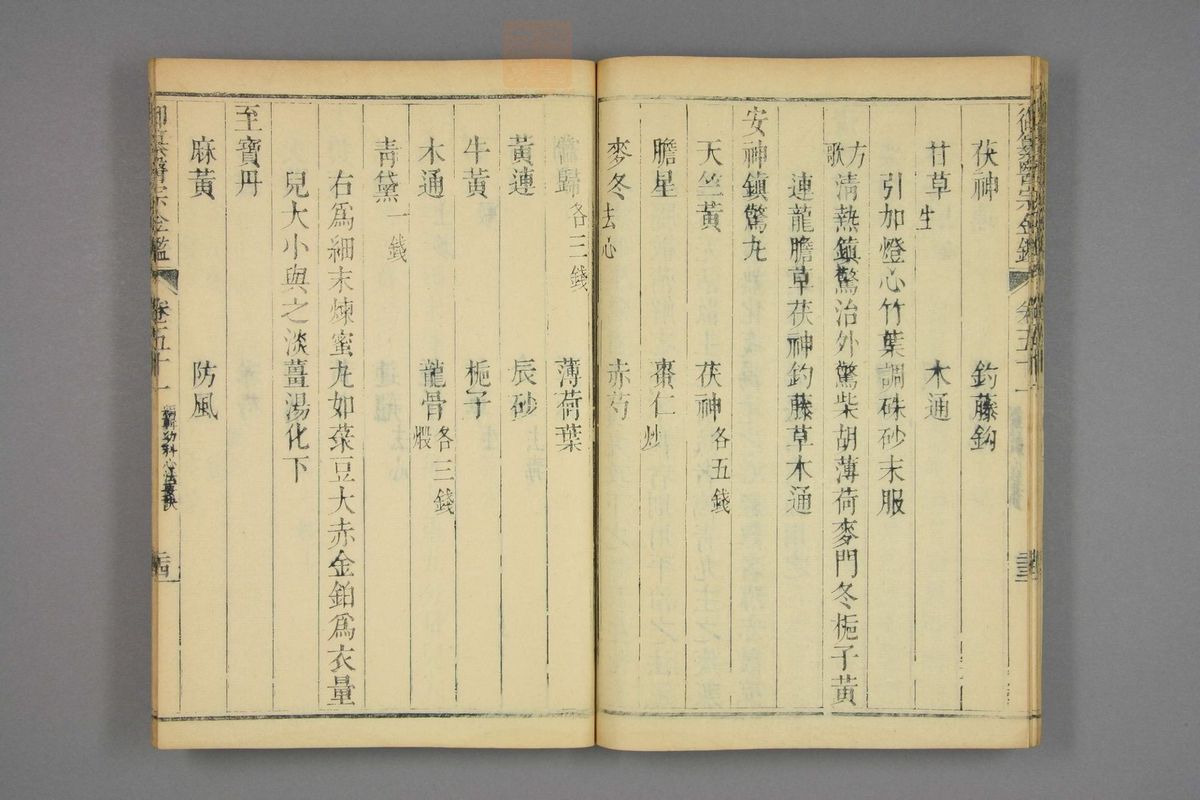 御纂醫宗金鑑 卷五十一
茯神 釣藤鈎
甘草生 木通
引加燈心竹葉調硃砂末服
方歌 清熱鎮驚治外驚柴胡薄荷麥門冬梔子黃
連龍膽草茯神釣藤草木通
安神鎮驚丸
天竺黃 茯神各五錢
膽星 棗仁炒
麥冬去心 赤芍
當歸各三錢 薄荷葉
黃連 辰砂
牛黃 梔子
木通 龍骨煅各三錢
青黛一錢
右爲細末煉蜜丸如菉豆大赤金鉑爲衣量
兒大小與之淡薑湯化下
至寶丹
麻黃 防風
御纂醫宗金鑑 卷五十一 編輯幼科心法要訣 二十四